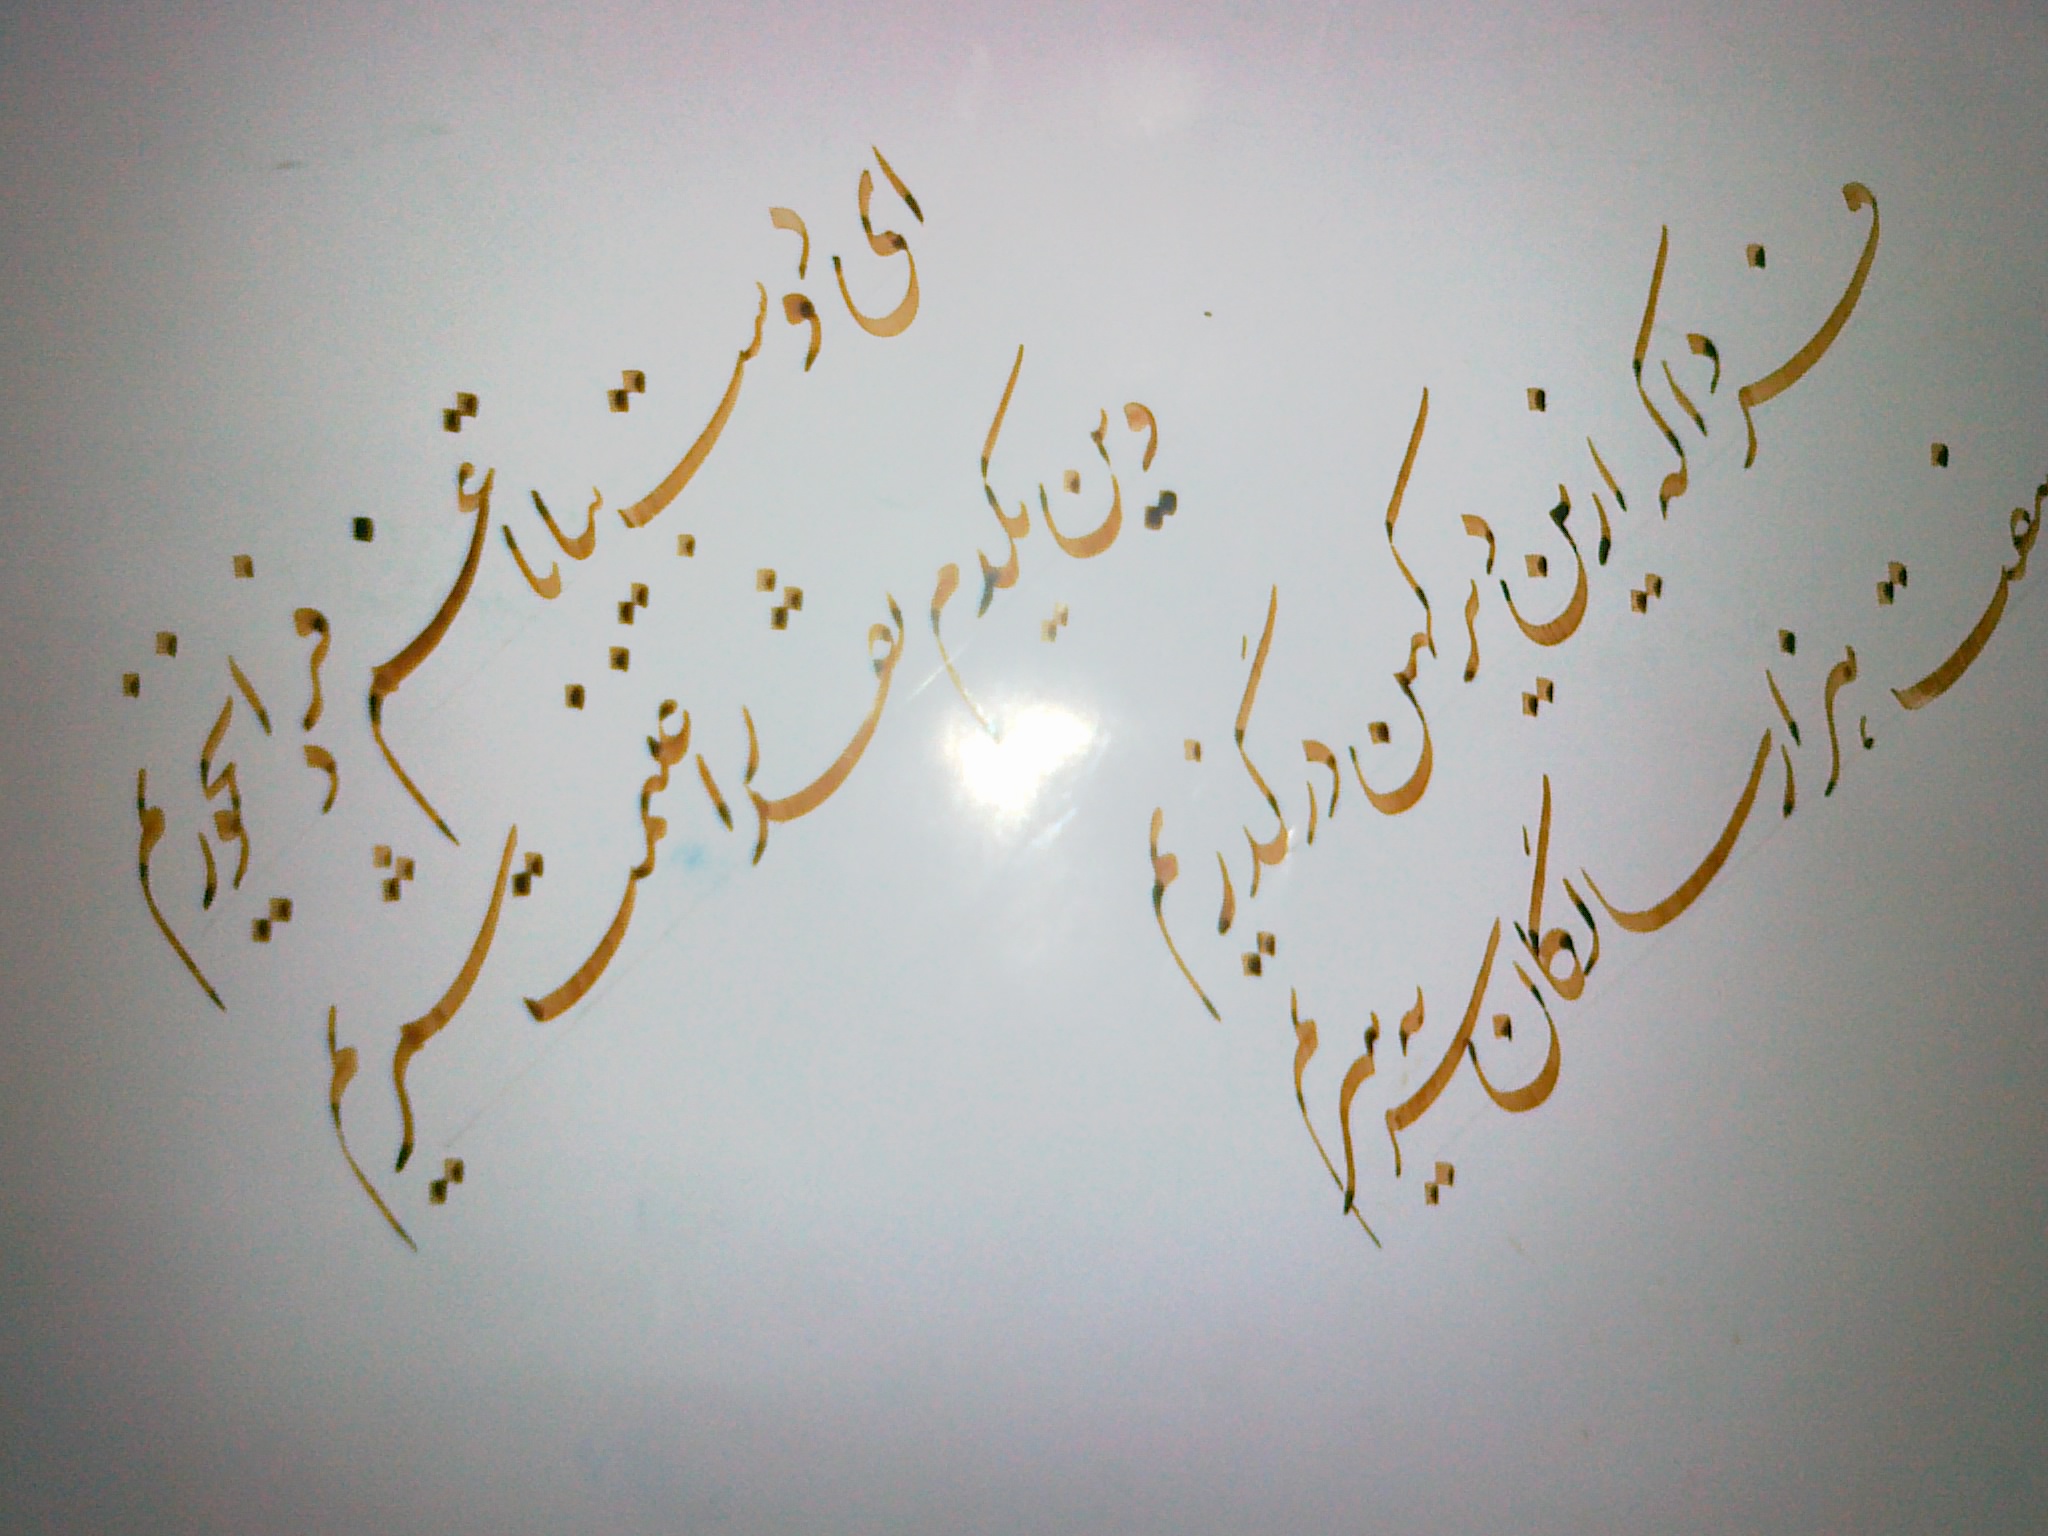 ای دوست بیا تا غم فردا نخوریم
وین یکدم نقد را غنیمت شمریم
فردا که ازین دیر کهن درگذریم
هفت هزار سالگان سر به سریم